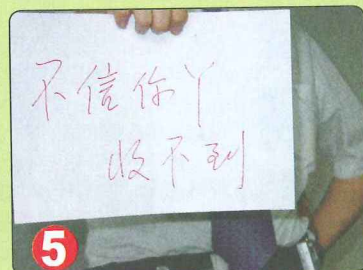 不信你丫
收不到
5